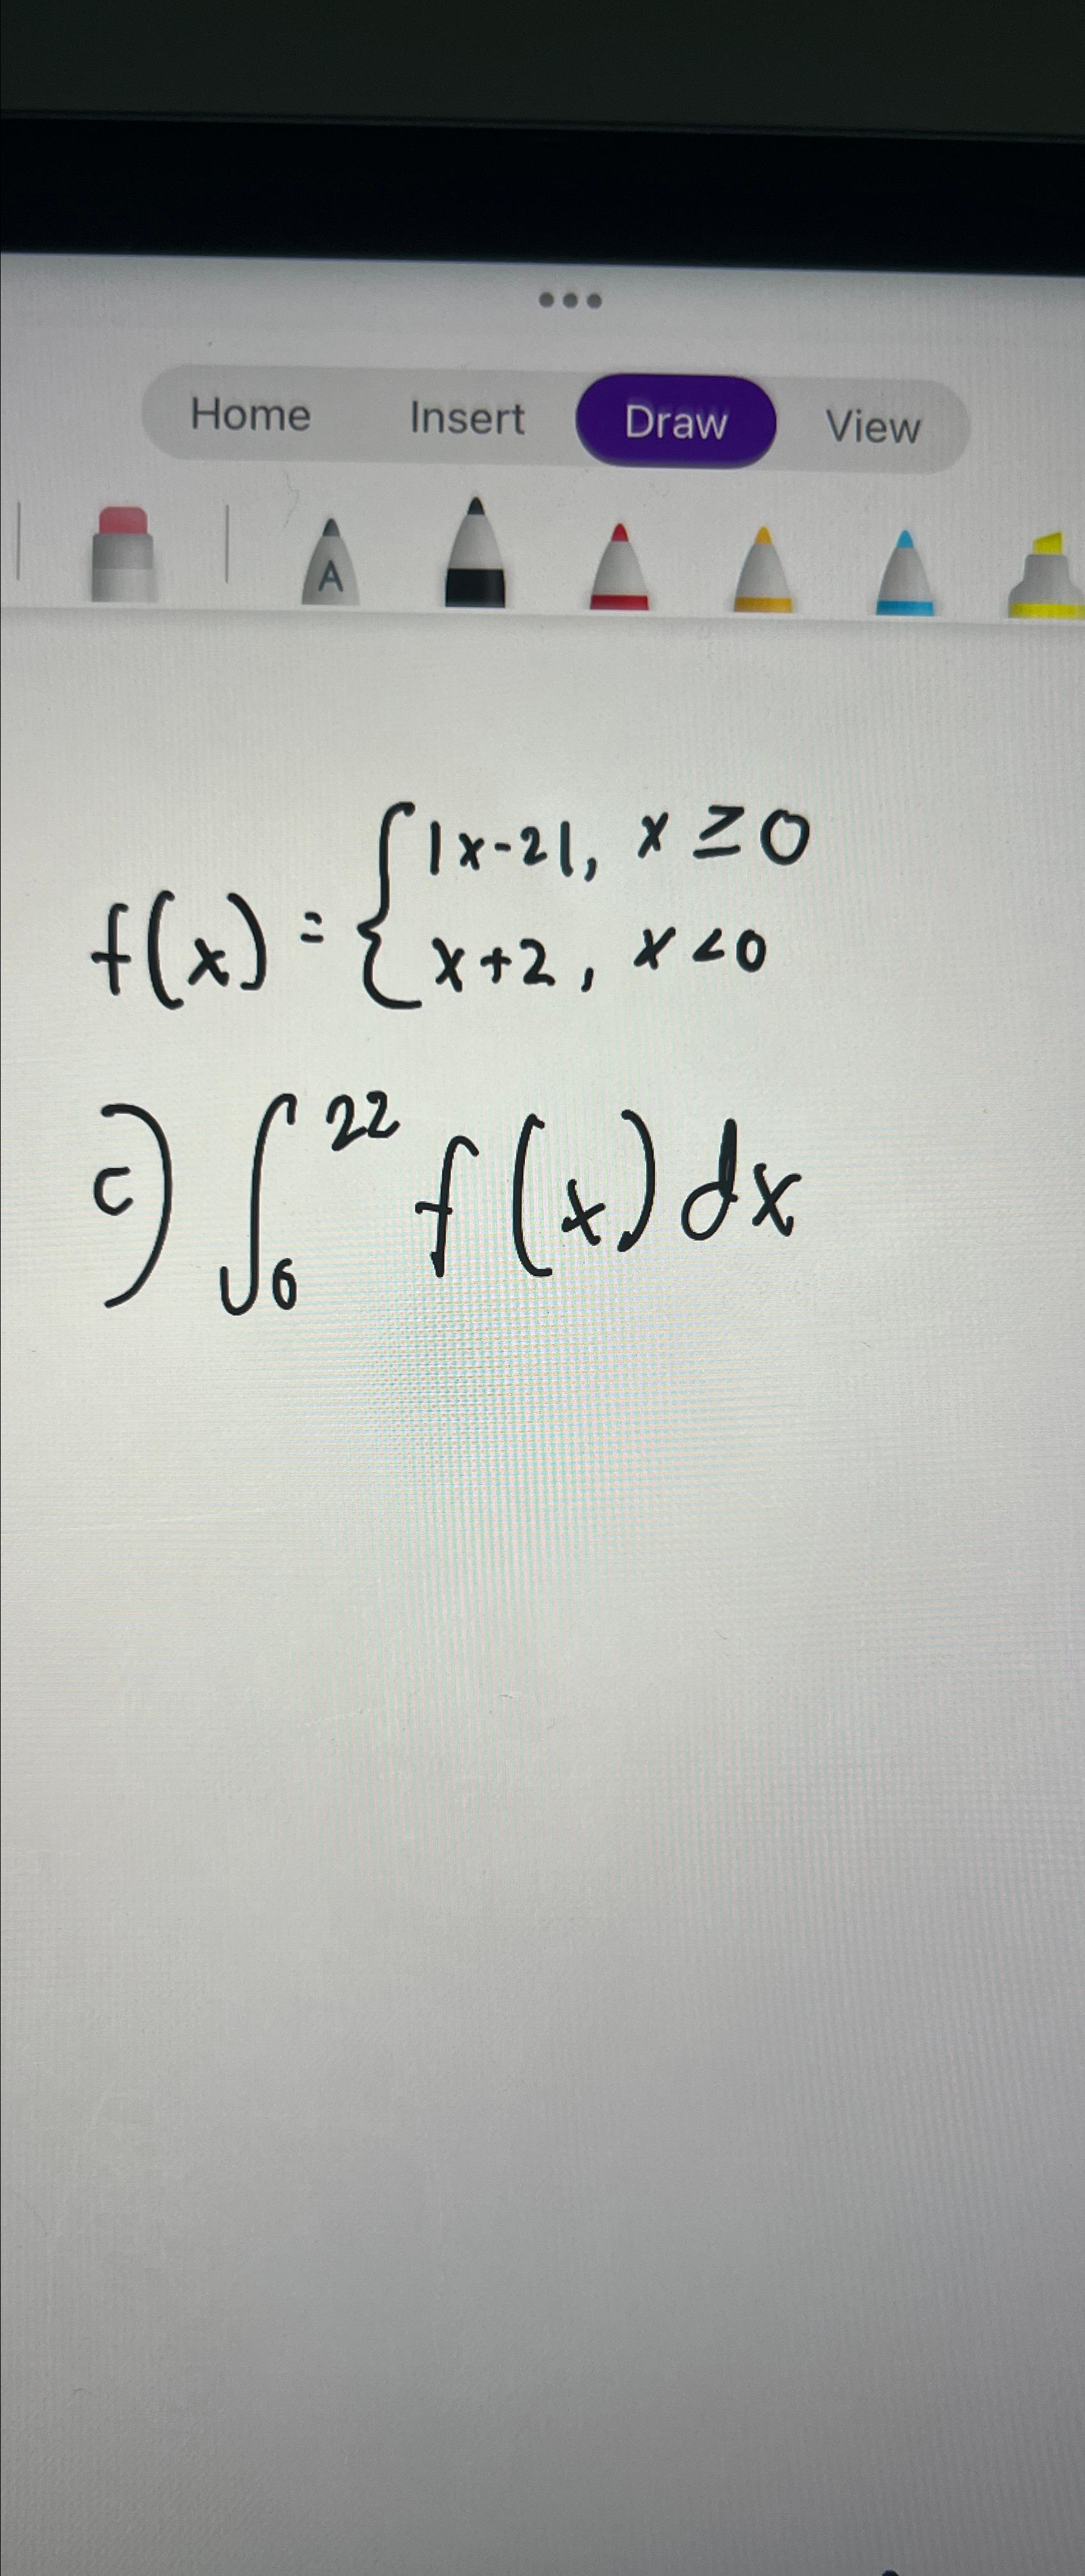 Home Insert Draw View
A
f(x) = { |x-2|, x ≥ 0
x+2, x<0
c) ∫₆²² f(x) dx